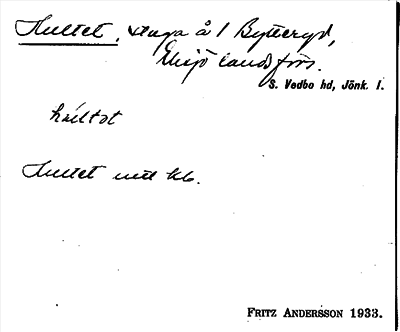 Hultet, stuga å 1 Bytteryd,
Eksjö landsförs.
S. Vedbo hd, Jönk. l.
hultət
Hultet utt kb.
FRITZ ANDERSSON 1933.